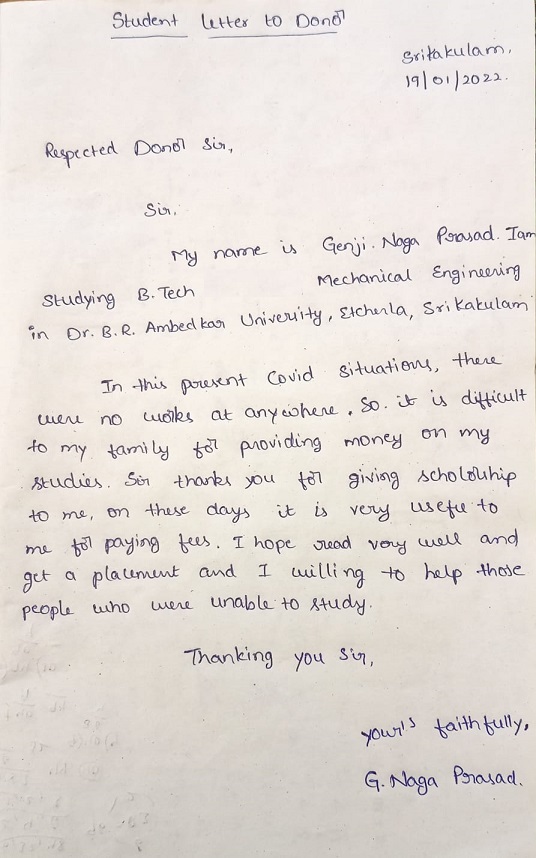 Student Letter to Donor
Srikakulam,
19/01/2022.
Respected Donor Sir,
Sir,
My name is Genji. Naga Prasad. Iam
Studying B.Tech Mechanical Engineering
in Dr. B.R. Ambedkar University, Etcherla, Srikakulam
In this present Covid situations, there
were no works at anywhere. So. it is difficult
to my family for providing money on my
studies. Sir thanks you for giving scholorship
to me, on these days it is very usefu to
me for paying fees. I hope read very well and
get a placement and I willing to help those
people who were unable to study.
Thanking you Sir,
your's faithfully,
G. Naga Prasad.